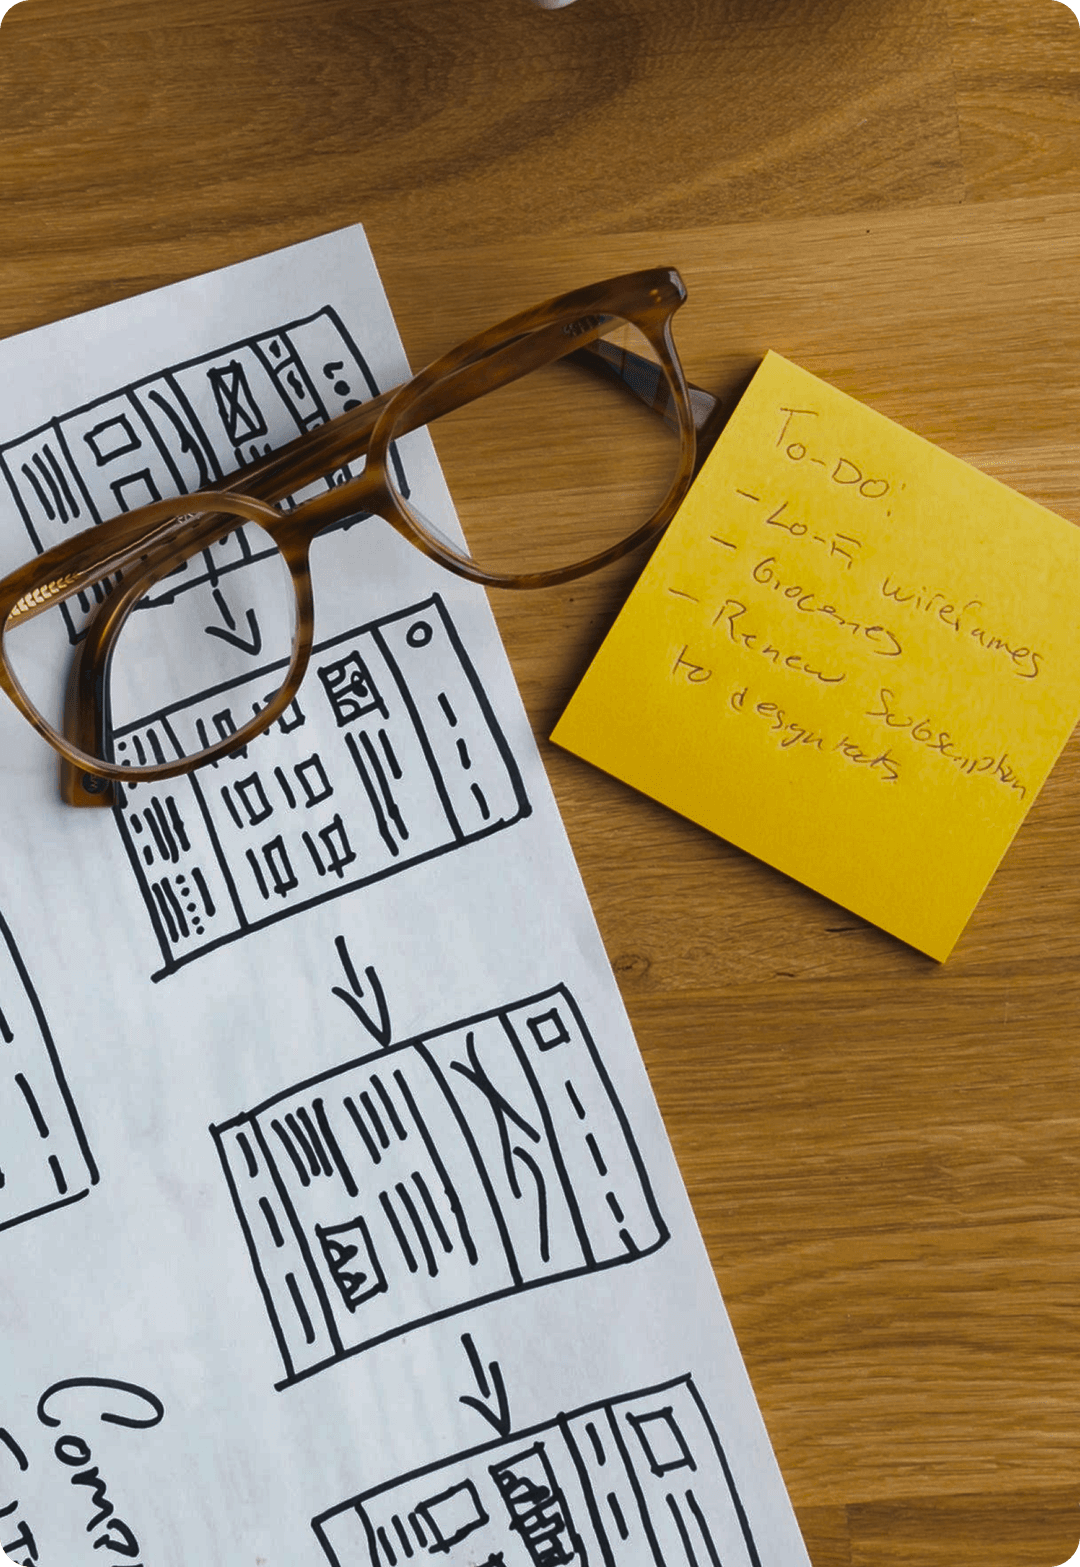 To-Do:
- Lo-Fi wireframes
- Groceries
- Renew Subscription
to design tools
Comp